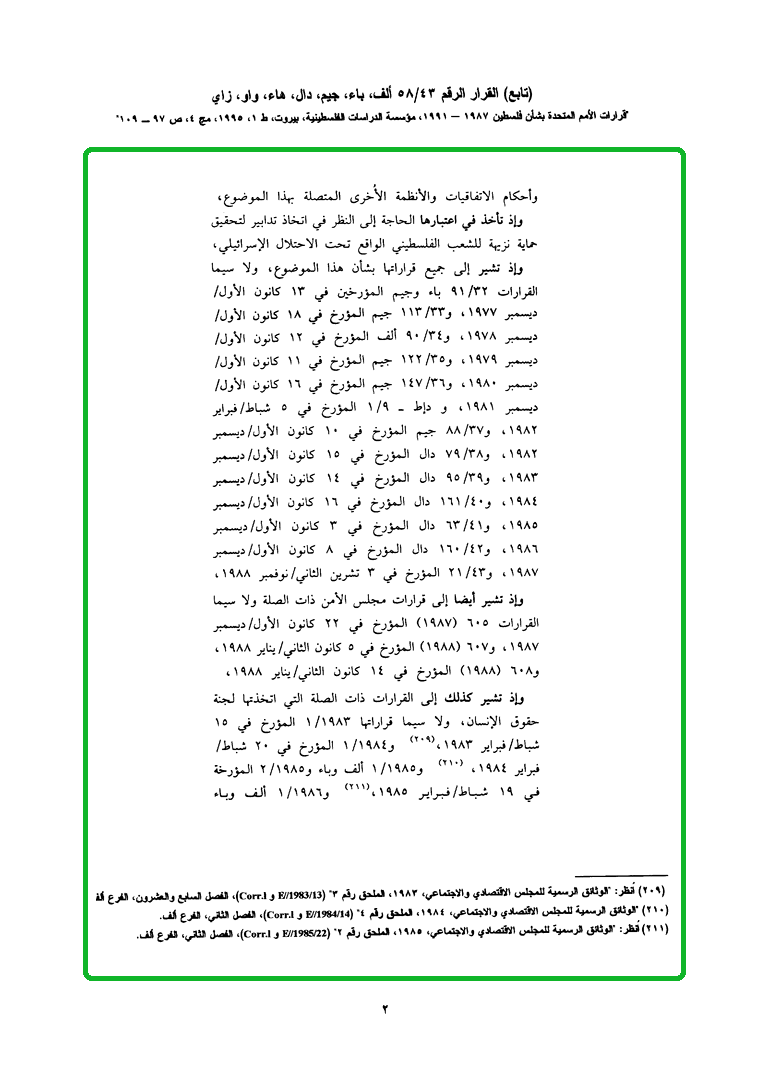 (تابع) القرار الرقم ٥٨/٤٣ ألف، باء، جيم، دال، هاء، واو، زاي
"قرارات الأمم المتحدة بشأن فلسطين ١٩٨٧ – ١٩٩١، مؤسسة الدراسات الفلسطينية، بيروت، ط ١، ١٩٩٥، مج ٤، ص ٩٧ – ١٠٩"
وأحكام الاتفاقيات والأنظمة الأُخرى المتصلة بهذا الموضوع،
وإذ تأخذ في اعتبارها الحاجة إلى النظر في اتخاذ تدابير لتحقيق
حماية نزيهة للشعب الفلسطيني الواقع تحت الاحتلال الإسرائيلي،
وإذ تشير إلى جميع قراراتها بشأن هذا الموضوع، ولا سيما
القرارات ٩١/٣٢ باء وجيم المؤرخين في ١٣ كانون الأول/
ديسمبر ١٩٧٧، و١١٣/٣٣ جيم المؤرخ في ١٨ كانون الأول/
ديسمبر ١٩٧٨، و٩٠/٣٤ ألف المؤرخ في ١٢ كانون الأول/
ديسمبر ١٩٧٩، و١٢٢/٣٥ جيم المؤرخ في ١١ كانون الأول/
ديسمبر ١٩٨٠، و١٤٧/٣٦ جيم المؤرخ في ١٦ كانون الأول/
ديسمبر ١٩٨١، و دإط - ١/٩ المؤرخ في ٥ شباط/فبراير
١٩٨٢، و٨٨/٣٧ جيم المؤرخ في ١٠ كانون الأول/ديسمبر
١٩٨٢، و٧٩/٣٨ دال المؤرخ في ١٥ كانون الأول/ديسمبر
١٩٨٣، و٩٥/٣٩ دال المؤرخ في ١٤ كانون الأول/ديسمبر
١٩٨٤، و١٦١/٤٠ دال المؤرخ في ١٦ كانون الأول/ديسمبر
١٩٨٥، و٦٣/٤١ دال المؤرخ في ٣ كانون الأول/ديسمبر
١٩٨٦، و١٦٠/٤٢ دال المؤرخ في ٨ كانون الأول/ديسمبر
١٩٨٧، و٢١/٤٣ المؤرخ في ٣ تشرين الثاني/نوفمبر ١٩٨٨،
وإذ تشير أيضا إلى قرارات مجلس الأمن ذات الصلة ولا سيما
القرارات ٦٠٥ (١٩٨٧) المؤرخ في ٢٢ كانون الأول/ديسمبر
١٩٨٧، و٦٠٧ (١٩٨٨) المؤرخ في ٥ كانون الثاني/يناير ١٩٨٨،
و٦٠٨ (١٩٨٨) المؤرخ في ١٤ كانون الثاني/يناير ١٩٨٨،
وإذ تشير كذلك إلى القرارات ذات الصلة التي اتخذتها لجنة
حقوق الإنسان، ولا سيما قراراتها ١/١٩٨٣ المؤرخ في ١٥
شباط/فبراير ١٩٨٣،(٢٠٩) و١/١٩٨٤ المؤرخ في ٢٠ شباط/
فبراير ١٩٨٤، (٢١٠) و١/١٩٨٥ ألف وباء و٢/١٩٨٥ المؤرخة
في ١٩ شباط/فبراير ١٩٨٥،(٢١١) و١/١٩٨٦ ألف وباء
(٢٠٩) أنظر: "الوثائق الرسمية للمجلس الاقتصادي والاجتماعي، ١٩٨٣، الملحق رقم ٣" (E//1983/13 و Corr.l)، الفصل السابع والعشرون، الفرع ألف
(٢١٠) "الوثائق الرسمية للمجلس الاقتصادي والاجتماعي، ١٩٨٤، الملحق رقم ٤" (E//1984/14 و Corr.l)، الفصل الثاني، الفرع ألف.
(٢١١) أنظر: "الوثائق الرسمية للمجلس الاقتصادي والاجتماعي، ١٩٨٥، الملحق رقم ٢" (E//1985/22 و Corr.l)، الفصل الثاني، الفرع ألف.
٢